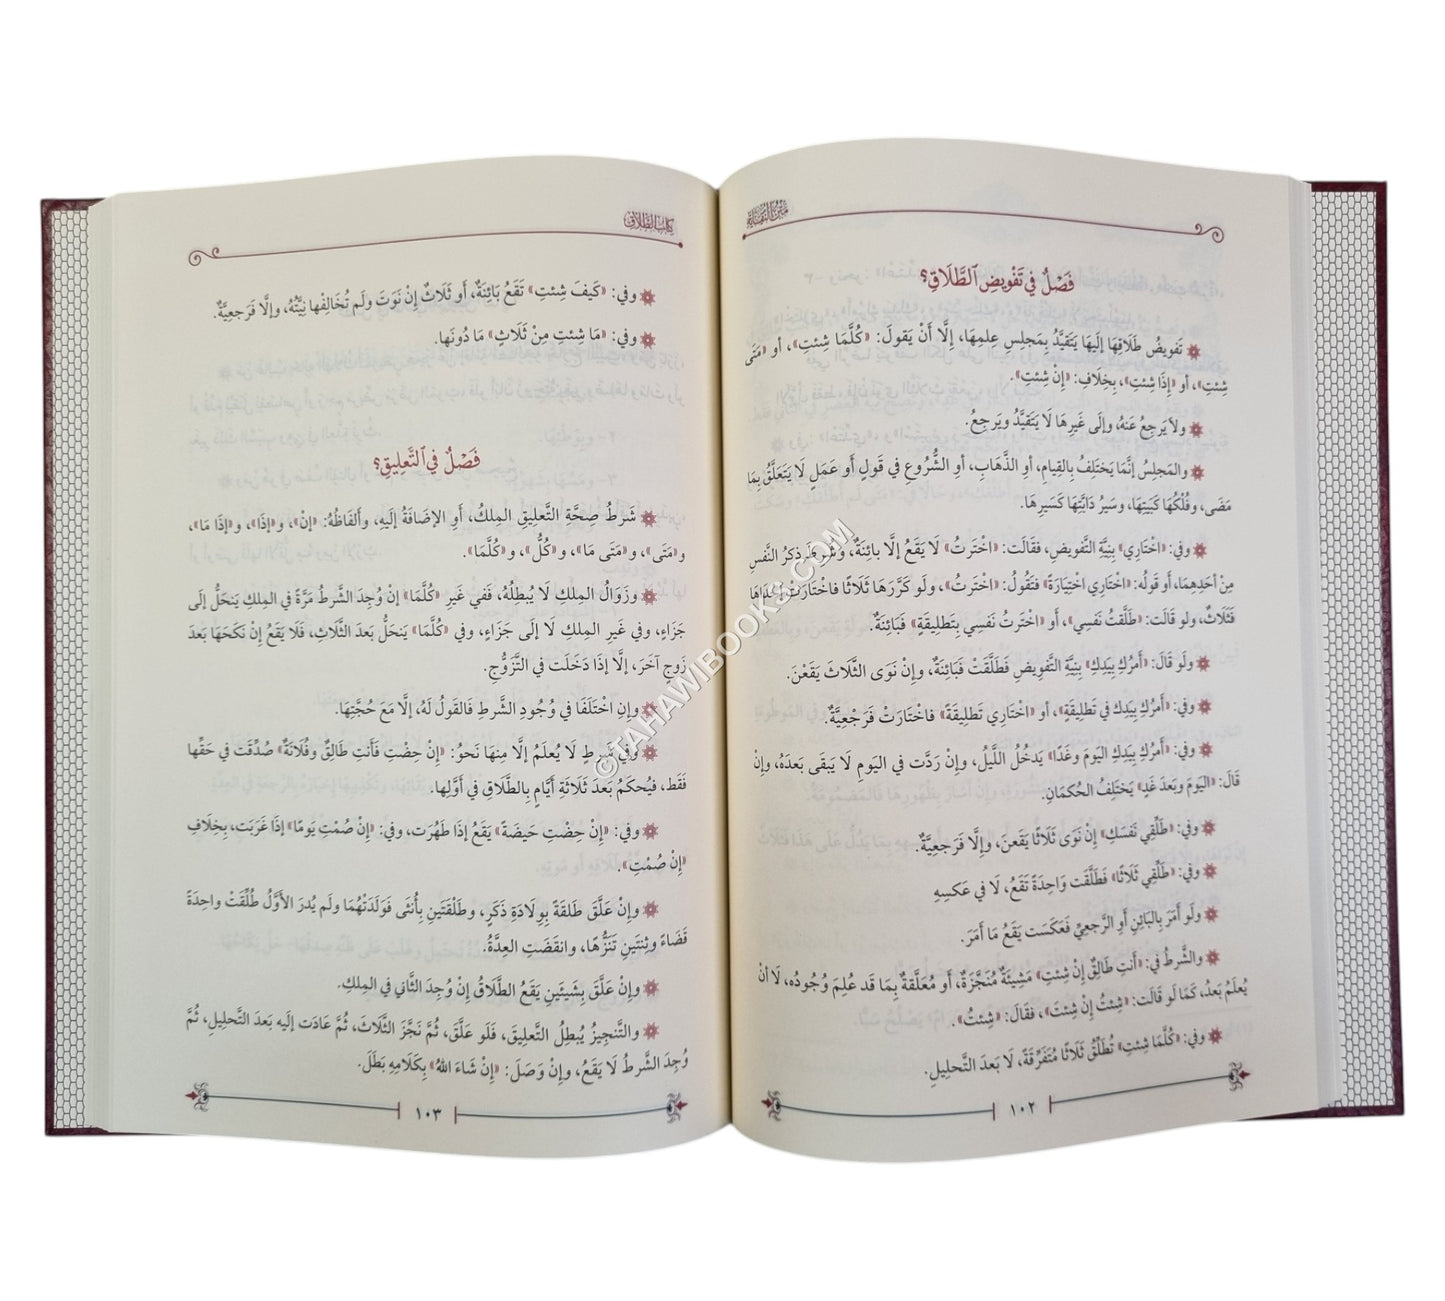 مَتْنُ النُّقَايَةِ
فَصْلٌ في تَفْوِيضِ ٱلطَّلَاقِ؟
تَفوِيضُ طَلَاقِهَا إلَيهَا يَتَقيَّدُ بِمَجلِسِ عِلمِهَا، إلَّا أَنْ يَقولَ: «كُلَّمَا شِئتِ»، أو «مَتَى
شِئتِ»، أو «إذَا شِئتِ»، بِخِلَافِ: «إنْ شِئتِ».
ولَا يَرجِعُ عَنهُ، وإلَى غَيرِهَا لَا يَتَقيَّدُ ويَرجِعُ.
والمَجلِسُ إنَّمَا يَختَلِفُ بِالقِيامِ، أو الذَّهَابِ، أو الشُّرُوعِ في قَولٍ أو عَمَلٍ لَا يَتَعلَّقُ بِمَا
مَضَى، وفُلْكُهَا كَبَيتِهَا، وسَيرُ دَابَّتِهَا كَسَيرِهَا.
وفي: «اخْتَارِي» بِنِيَّةِ التَّفويضِ، فقَالَت: «اخْتَرتُ» لَا يَقَعُ إلَّا بائِنةٌ، وشُرِطَ ذِكرُ النَّفسِ
مِنْ أحَدِهِمَا، أو قَولُه: «اخْتَارِي اخْتِيَارَةً» فتَقُولُ: «اخْتَرتُ»، ولَو كَرَّرَهَا ثَلَاثًا فاخْتَارَتْ إحْدَاهَا
فَثَلَاثٌ، ولو قالَت: «طَلَّقتُ نَفسِي»، أو «اخْتَرتُ نَفسِي بِتَطلِيقَةٍ» فَبَائِنَةٌ.
ولَو قَالَ: «أَمرُكِ بِيَدِكِ» بِنِيَّةِ التَّفوِيضِ فَطَلَّقَتْ فَبَائِنَةٌ، وإنْ نَوَى الثَّلَاثَ يَقَعْنَ.
وفي: «أَمرُكِ بِيَدِكِ في تَطلِيقَةٍ»، أو «اخْتَارِي تَطلِيقَةً» فاخْتَارَتْ فَرَجْعِيَّةٌ.
وفي: «أَمرُكِ بِيَدِكِ اليَومَ وغَدًا» يَدخُلُ اللَّيلُ، وإنْ رَدَّت في اليَومِ لَا يَبقَى بَعدَهُ، وإنْ
قَالَ: «اليَومَ وبَعدَ غَدٍ» يَختَلِفُ الحُكمَانِ.
وفي: «طَلِّقِي نَفسَكِ» إنْ نَوَى ثَلَاثًا يَقَعنَ، وإلَّا فَرَجعِيَّةٌ.
وفي: «طَلِّقِي ثَلَاثًا» فَطَلَّقَت وَاحِدَةً تَقَعُ، لَا في عَكسِهِ
ولَو أَمَرَ بِالبَائِنِ أوِ الرَّجعِيِّ فَعَكَسَت يَقَعُ مَا أَمَرَ.
والشَّرطُ في: «أَنتِ طَالِقٌ إنْ شِئتِ» مَشِيئَةٌ مُنَجَّزَةٌ، أو مُعَلَّقةٌ بِمَا قَد عُلِمَ وُجُودُه، لَا أنْ
يُعلَمُ بَعدُ، كَمَا لَو قَالَت: «شِئتُ إنْ شِئتَ»، فقَالَ: «شِئتُ».
وفي: «كُلَّمَا شِئتِ» تُطَلِّقُ ثَلَاثًا مُتَفَرِّقَةً، لَا بَعدَ التَّحلِيلِ.
١٠٢
كِتَابُ الطَّلَاقِ
وفي: «كَيفَ شِئتِ» تَقَعُ بَائِنَةٌ، أو ثَلَاثٌ إنْ نَوَتَ ولَم تُخَالِفْها نِيَّتُهُ، وإلَّا فَرَجعِيَّةٌ.
وفي: «مَا شِئتِ مِنْ ثَلَاثٍ» مَا دُونَها.
فَصْلٌ في ٱلتَّعلِيقِ؟
شَرَطُ صِحَّةِ التَّعلِيقِ المِلكُ، أَوِ الإضَافَةُ إلَيهِ، وألفَاظُهُ: «إنْ»، و«إذَا»، و«إذَا مَا»،
و«مَتَى»، و«مَتَى مَا»، و«كُلُّ»، و«كُلَّمَا».
وزَوَالُ المِلكِ لَا يُبطِلُهُ، فَفي غَيرِ «كُلَّمَا» إنْ وُجِدَ الشَّرطُ مَرَّةً في المِلكِ يَنحَلُّ إلَى
جَزَاءٍ، وفي غَيرِ المِلكِ لَا إلَى جَزَاءٍ، وفي «كُلَّمَا» يَنحَلُّ بَعدَ الثَّلَاثِ، فَلَا يَقَعُ إنْ نَكَحَهَا بَعدَ
زَوجٍ آخَرَ، إلَّا إذَا دَخَلَت في التَّزَوُّجِ.
وإن اخْتَلَفَا في وُجُودِ الشَّرطِ فَالقَولُ لَهُ، إلَّا مَعَ حُجَّتِهَا.
وفي شَرطٍ لَا يُعلَمُ إلَّا مِنهَا نَحوُ: «إنْ حِضْتِ فَأَنتِ طَالِقٌ وفُلَانَةٌ» صُدِّقَت في حَقِّها
فَقَط، فيُحكَمُ بَعدَ ثَلَاثَةِ أَيَّامٍ بِالطَّلَاقِ في أَوَّلِها.
وفي: «إنْ حِضْتِ حَيضَةً» يَقَعُ إذَا طَهُرَت، وفي: «إنْ صُمْتِ يَومًا» إذَا غَرَبَت، بِخِلَافِ
«إنْ صُمْتِ».
وإنْ عَلَّقَ طَلقَةً بِوِلَادَةِ ذَكَرٍ، وطَلْقَتَينِ بِأُنثَى فَوَلَدَتْهُمَا ولَم يُدرَ الأَوَّلُ طُلِّقَتْ واحِدَةً
قَضَاءً وثِنتَينِ تَنَزُّهًا، وانقَضَتِ العِدَّةُ.
وإنْ عَلَّقَ بِشَيئَينِ يَقَعُ الطَّلَاقُ إنْ وُجِدَ الثَّاني في المِلكِ.
والتَّنجِيزُ يُبطِلُ التَّعلِيقَ، فَلَو عَلَّقَ، ثُمَّ نَجَّزَ الثَّلَاثَ، ثُمَّ عَادَت إلَيه بَعدَ التَّحلِيلِ، ثُمَّ
وُجِدَ الشَّرطُ لَا يَقَعُ، وإنْ وَصَلَ: «إنْ شَاءَ اللهُ» بِكَلَامِهِ بَطَلَ.
١٠٣
©TAHAWIBOOKS.COM